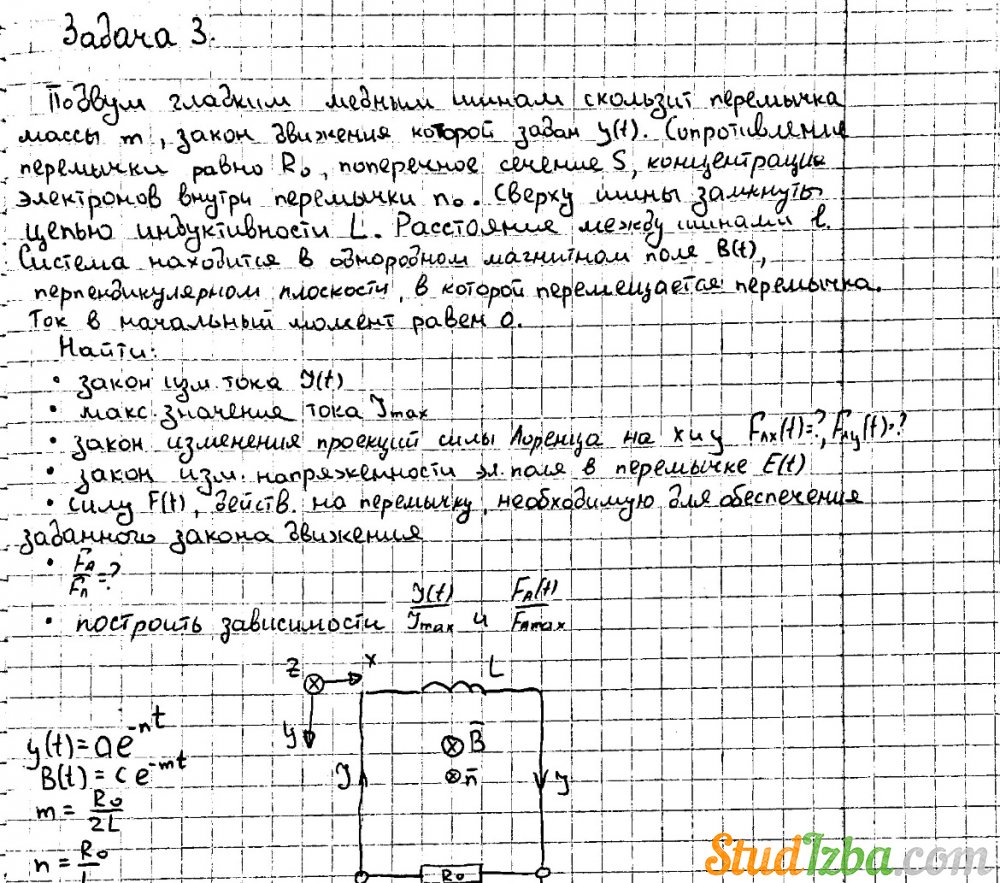 Задача 3.
По двум гладким медным шинам скользит перемычка
массы m, закон движения которой задан y(t). Сопротивление
перемычки равно R₀, поперечное сечение S, концентрация
электронов внутри перемычки n₀. Сверху шины замкнуты
цепью индуктивности L. Расстояние между шинами l.
Система находится в однородном магнитном поле B(t),
перпендикулярном плоскости, в которой перемещается перемычка.
Ток в начальный момент равен 0.
Найти:
• закон изм. тока J(t)
• макс. значение тока Jmax
• закон изменения проекций силы Лоренца на x и y Fлx(t)=?, Fлy(t)=?
• закон изм. напряженности эл. поля в перемычке E(t)
• силу F(t), действ. на перемычку, необходимую для обеспечения
заданного закона движения
• F_A/Fл=?
• построить зависимости J(t)/Jmax и F_A(t)/F_Amax
Z x L
y
y(t)=ae^-nt
B(t)=ce^-mt
B̄
n̄
J J
m = R₀/2L
n = R₀
R₀
StudIzba.com